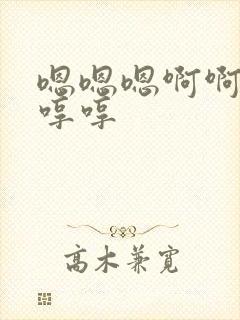 嗯嗯嗯啊啊
哼哼
高木兼宽